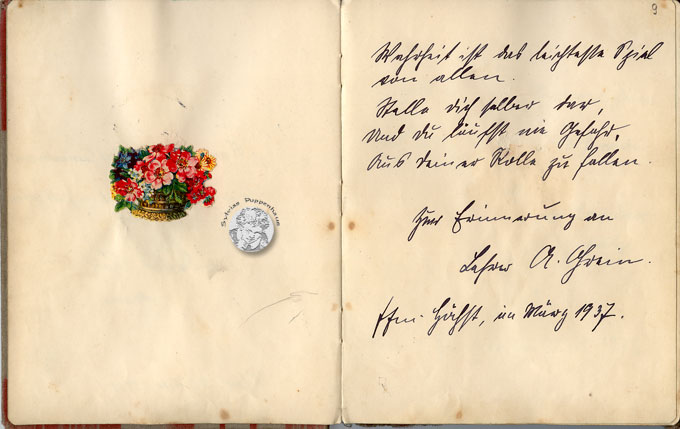 Sylvias Puppenhaus
9
Wahrheit ist das leichteste Spiel
von allen.
Stelle dich selber dar,
Und du läufst nie Gefahr,
Aus deiner Rolle zu fallen.
Zur Erinnerung an
Lehrer A. Grein.
Ffm. Höchst, im März 1937.